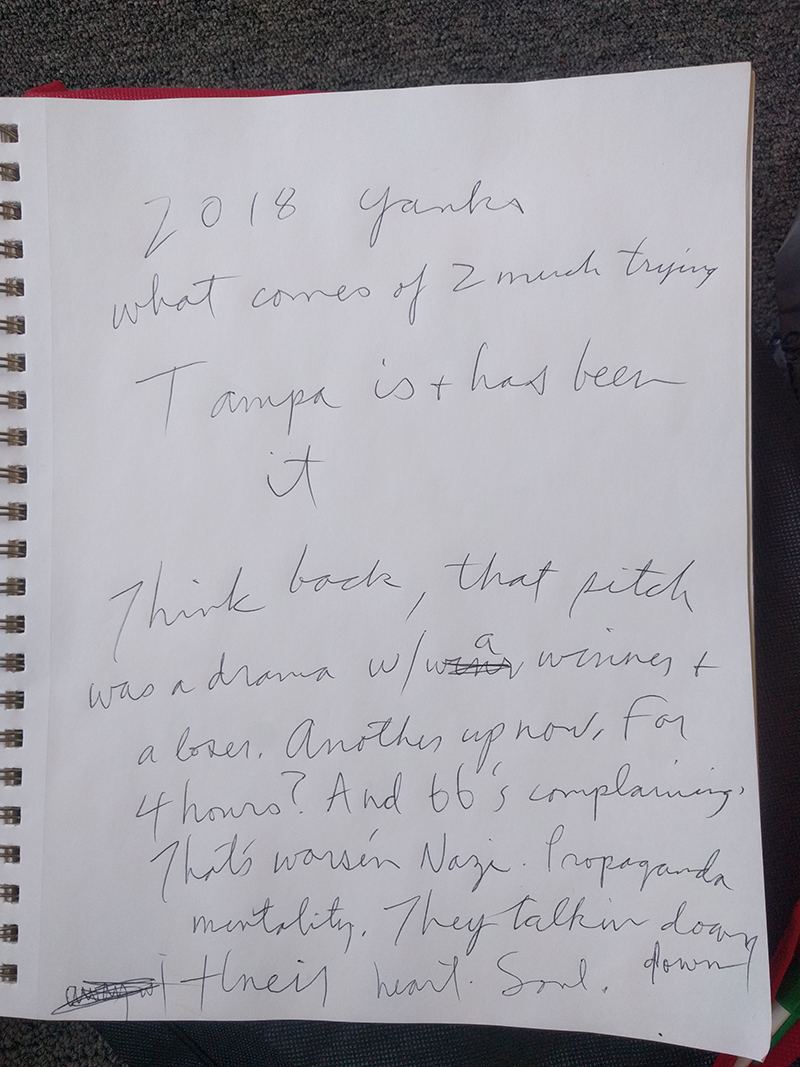 2018 Yanks
what comes of 2 much trying
Tampa is + has been
it
Think back, that pitch
was a drama w/ a winner +
a loser. Another up now. For
4 hours? And 66's complaining.
That's worse'n Nazi. Propaganda
mentality. They talkin down
down
their heart. Soul.